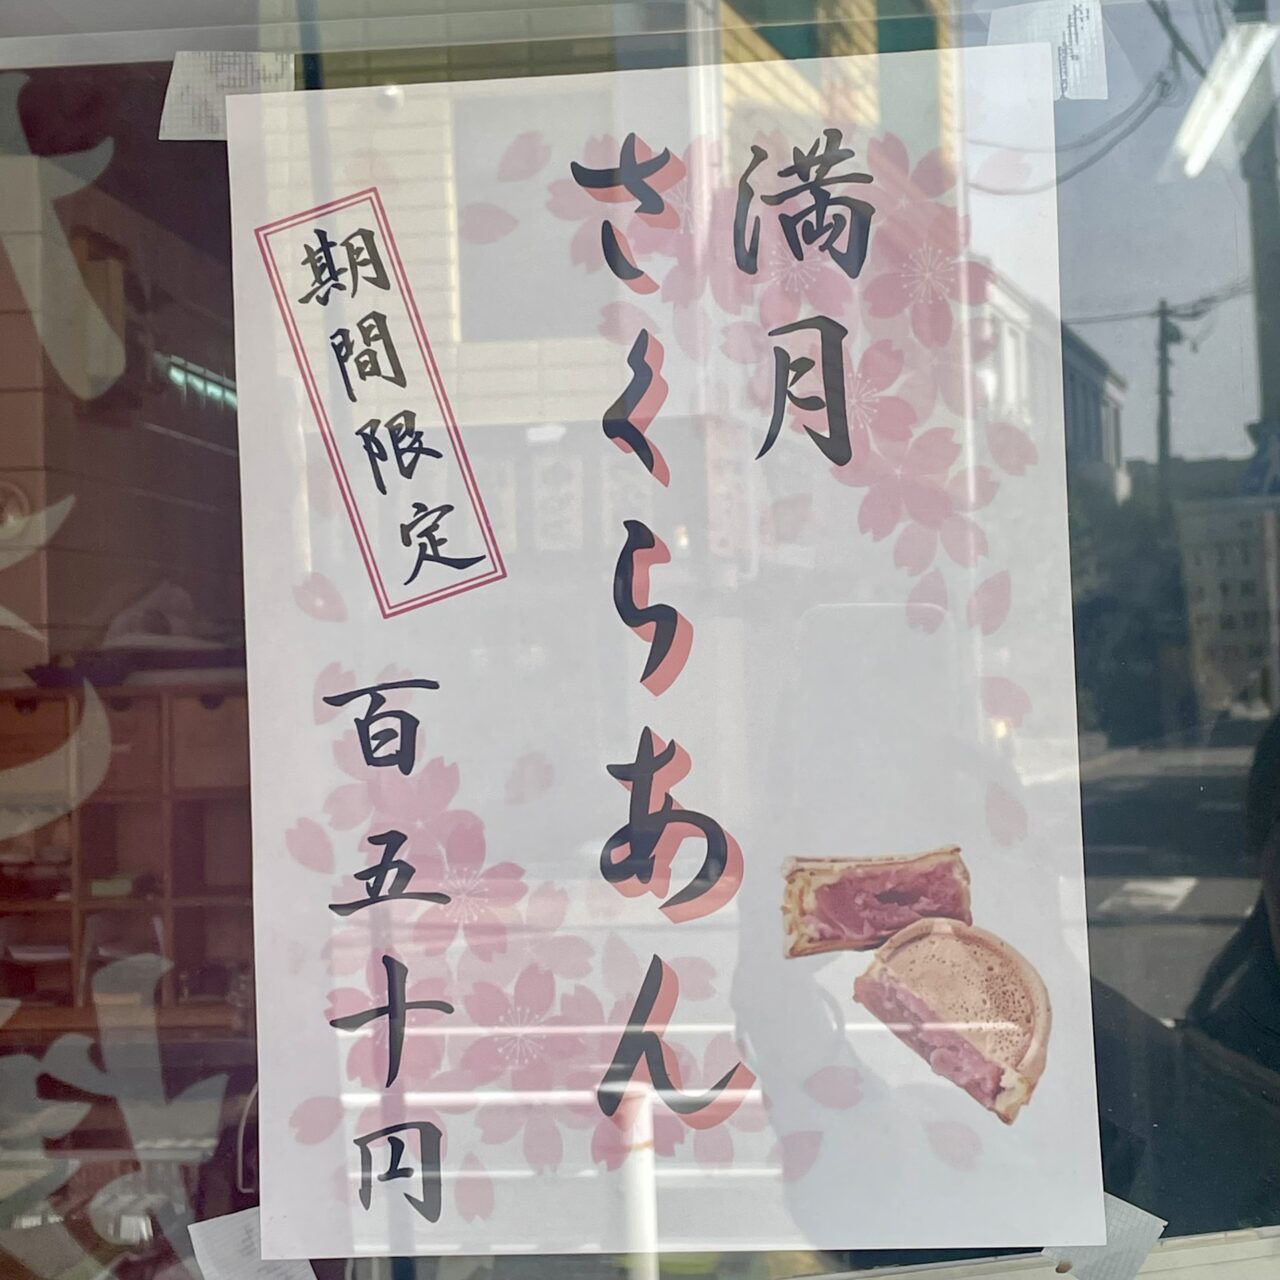 満月
さくらあん
期間限定
百五十円